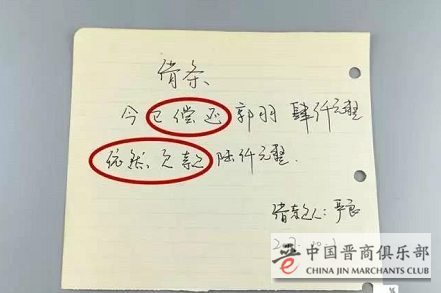 借条
今已偿还郭羽肆仟元整
依然欠款陆仟元整.
借款人：
中国晋商俱乐部
CHINA JIN MARCHANTS CLUB